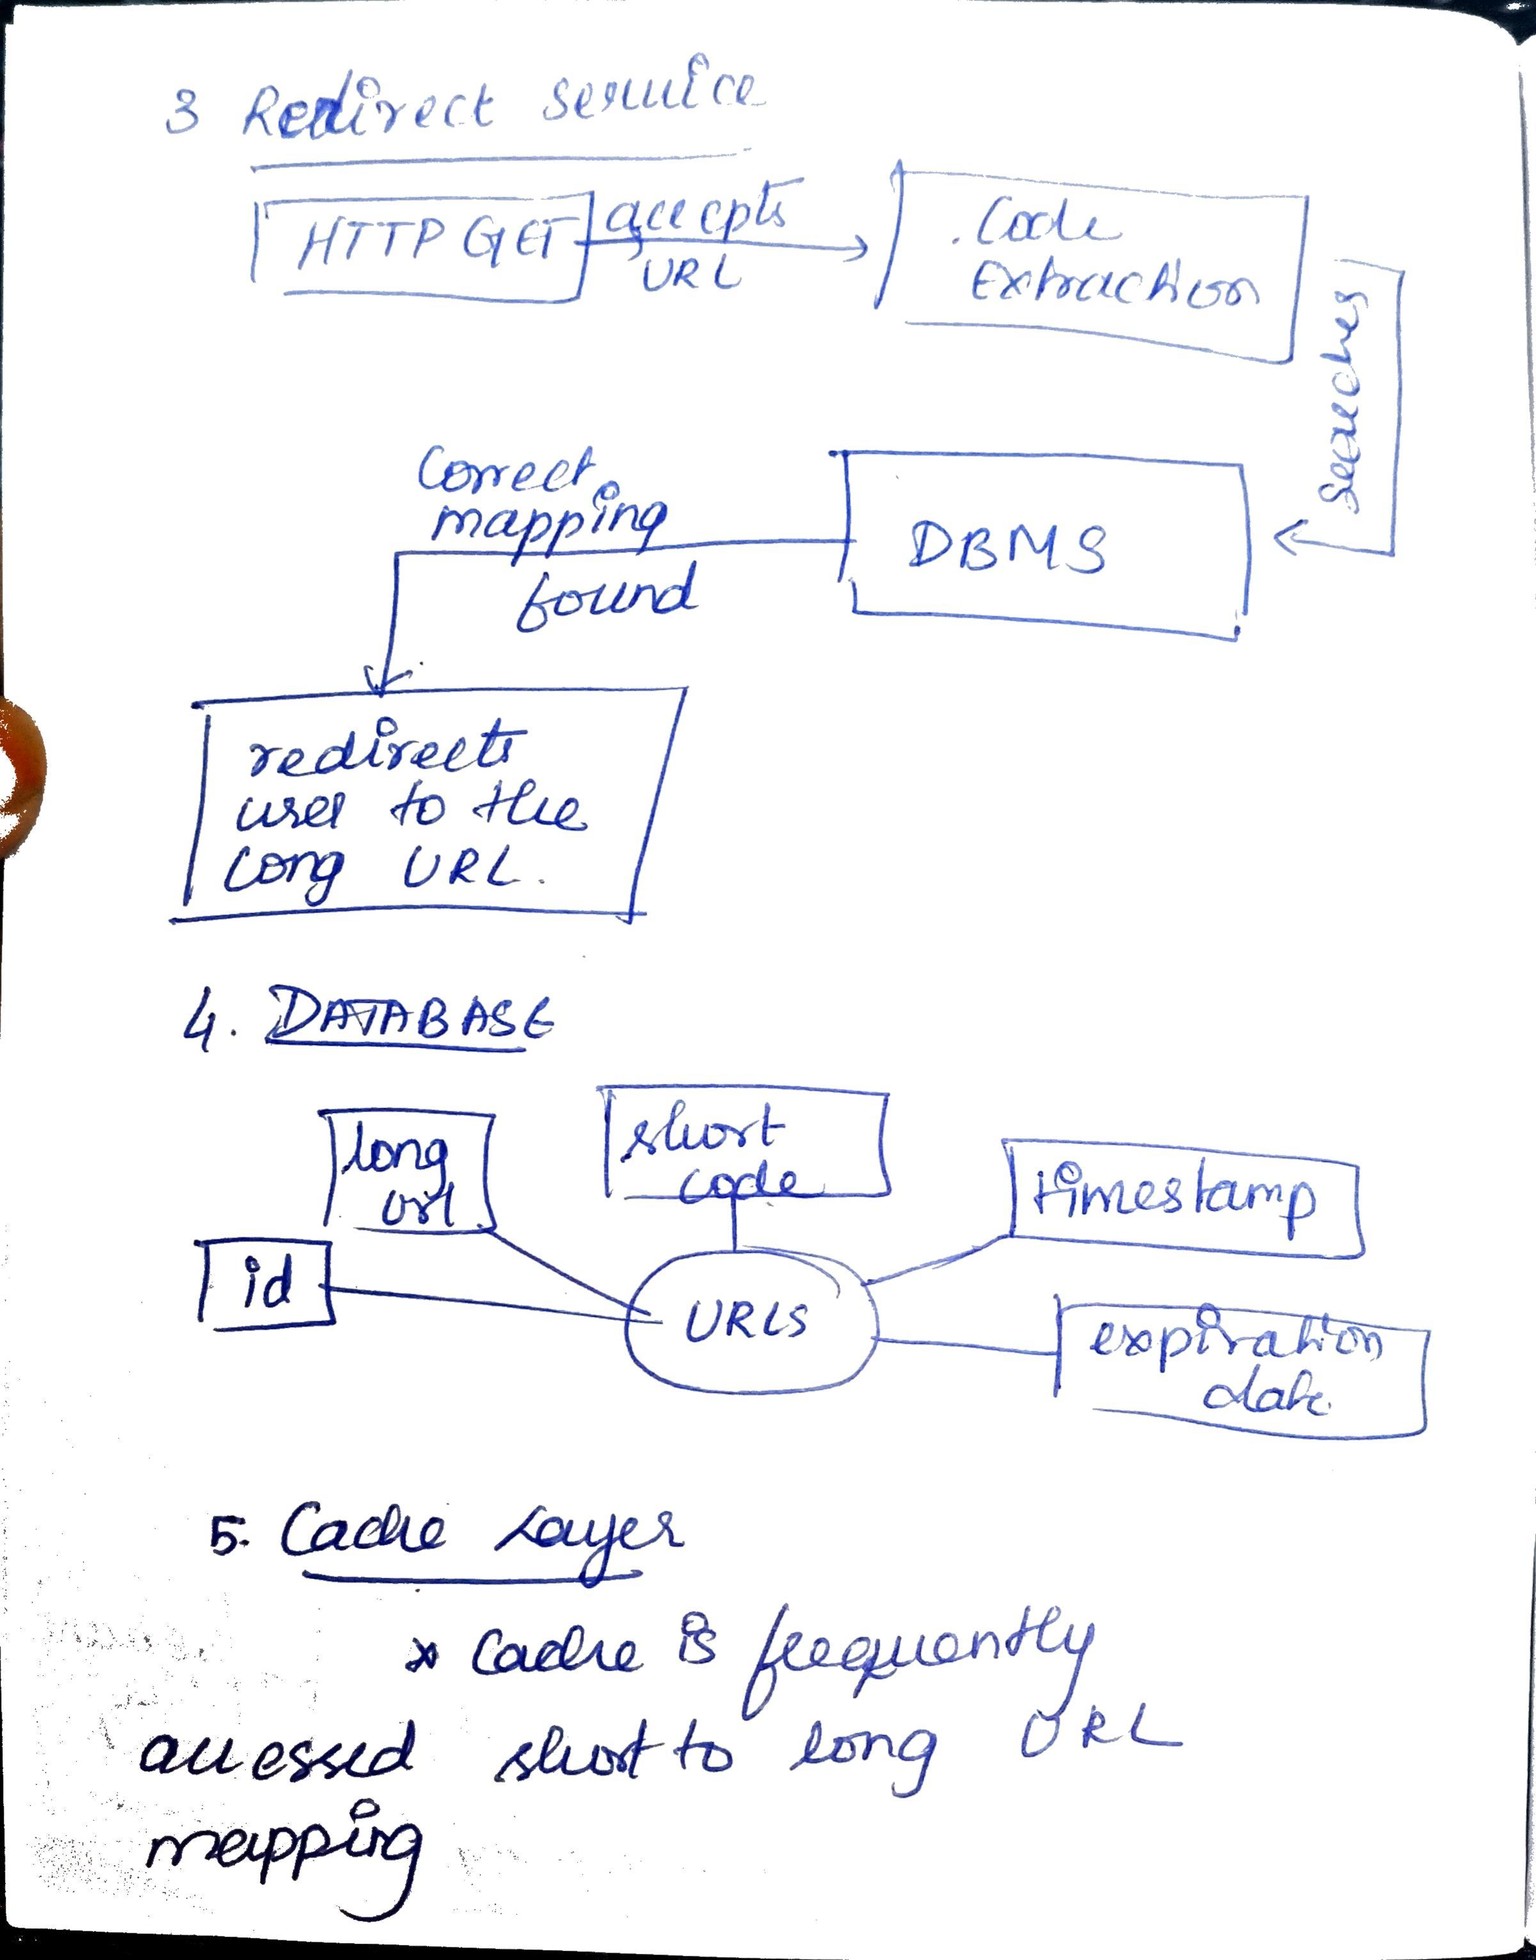 3 Redirect service
HTTP GET
accepts
URL
Code
Extraction
searches
Correct
mapping
found
DBMS
redirects
user to the
long URL.
4. DATABASE
long
url
short
code
timestamp
id
URLS
expiration
date.
5. Cache Layer
* Cache is frequently
accessed short to long URL
mapping